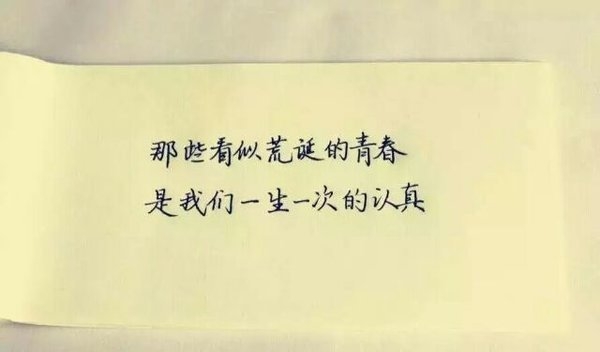 那些看似荒诞的青春
是我们一生一次的认真